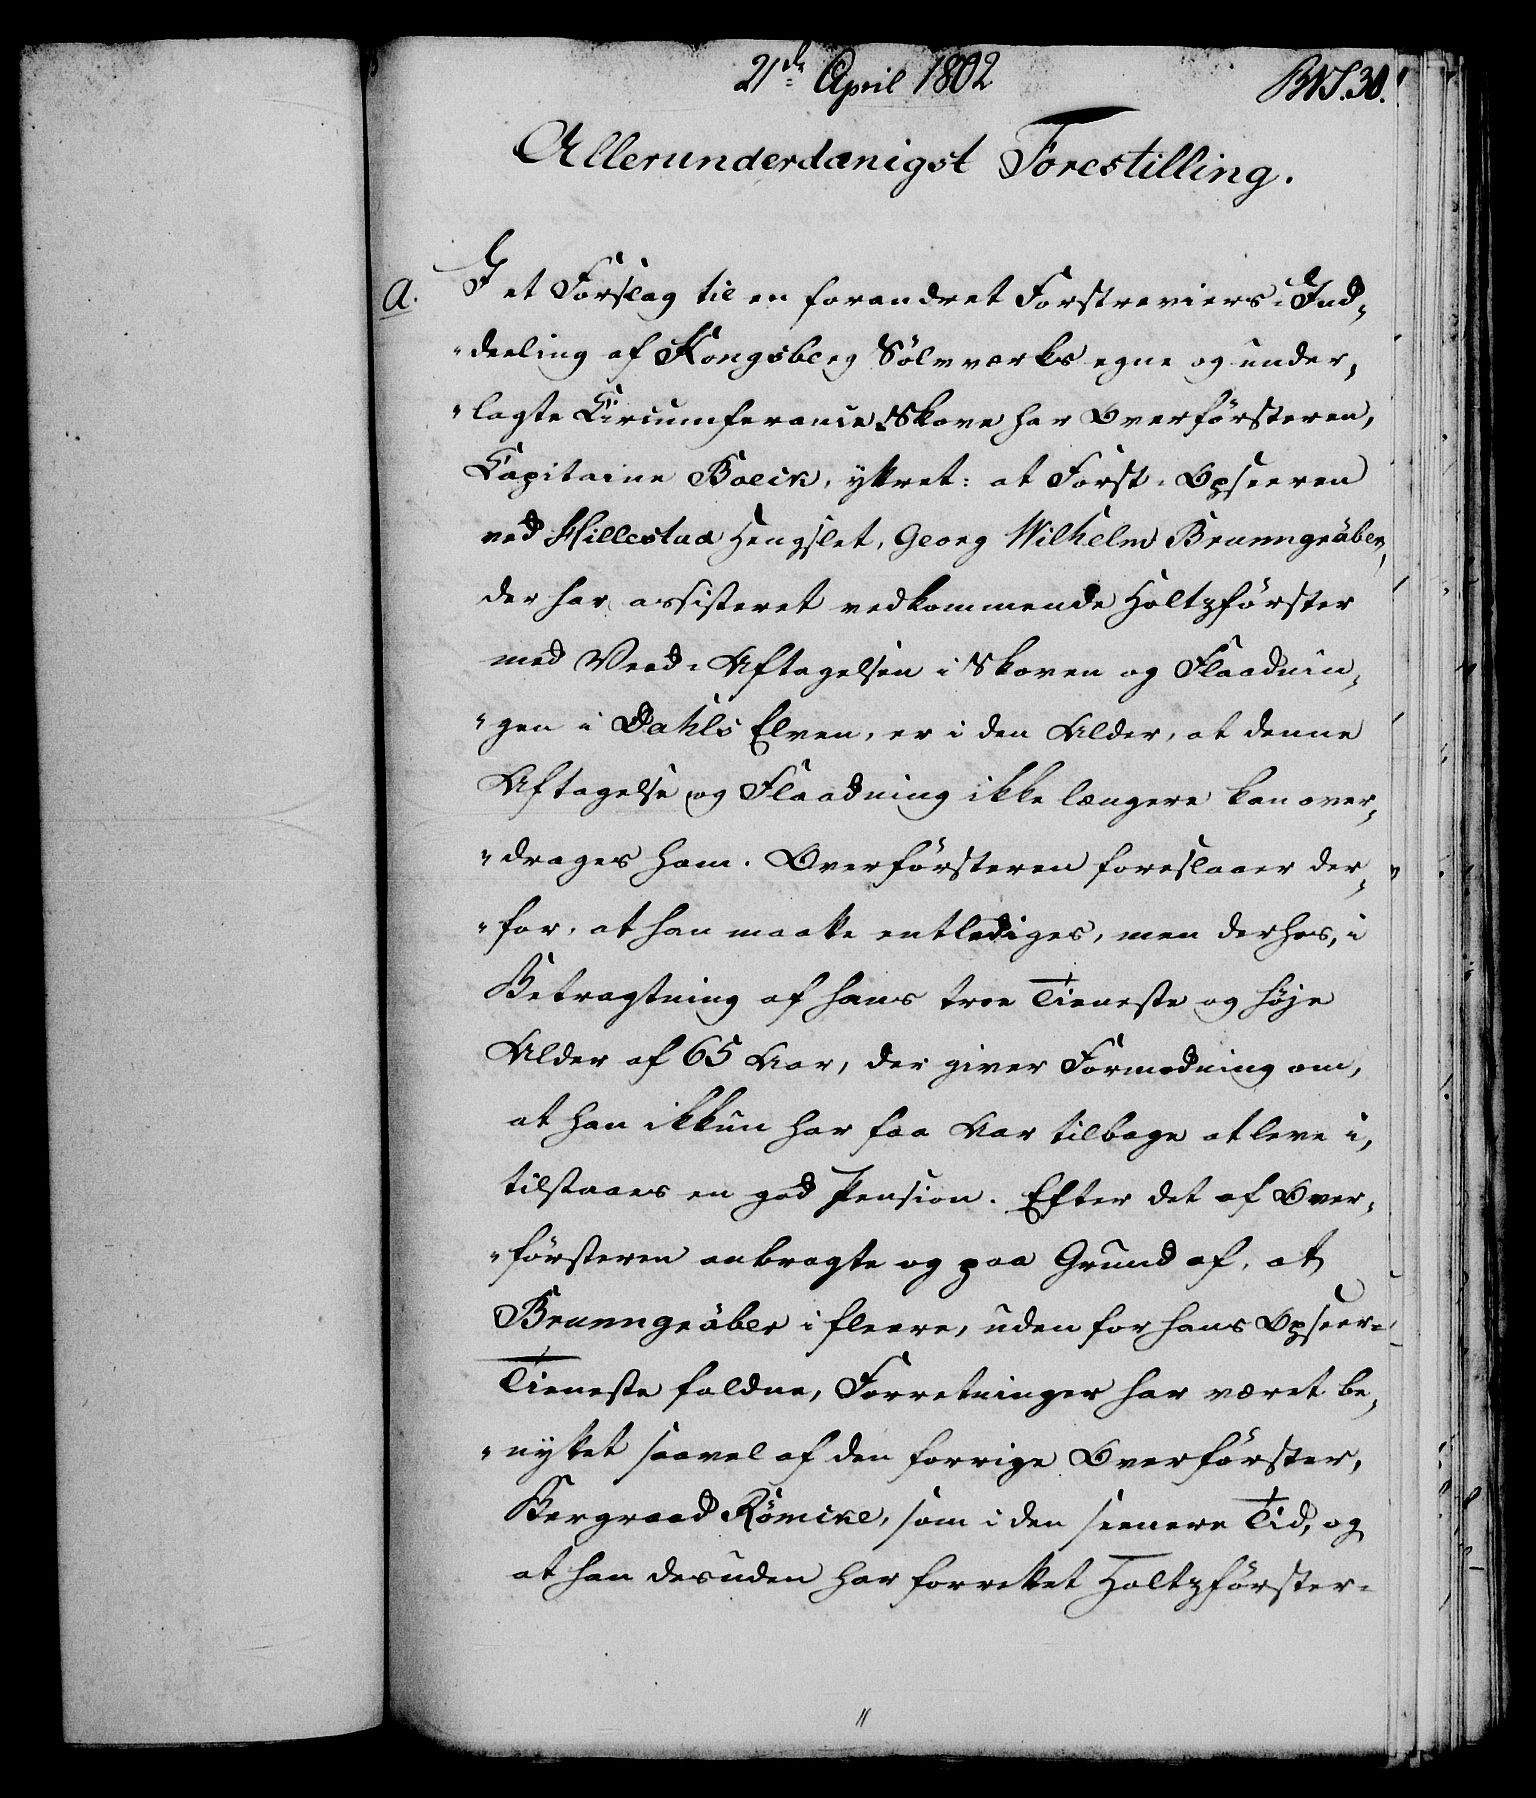 21de April 1802
BVS. 30.
Allerunderdanigst Forestilling.
a. I et Forslag til en forandret Forstreviers-Ind-
deeling af Kongsberg Sölvværks egne og under-
lagte Circumferance Skove har Overförsteren,
Capitaine Boeck, yttret: at Forst-Opseeren
ved Hillestad Hengslet, Georg Wilhelm Brunngräber,
der har assisteret vedkommende Holtzförster
med Veed-Aftagelsen i Skoven og Flaadnin-
gen i Dahls Elven, er i den Alder, at denne
Aftagelse og Flaadning ikke længere kan over-
drages ham. Overförsteren foreslaaer der-
for, at han maatte entlediges, men derhos, i
Betragtning af hans troe Tieneste og høje
Alder af 65 Aar, der giver Formodning om,
at han ikkun har faa Aar tilbage at leve i,
tilstaaes en god Pension. Efter det af Over-
försteren anbragte og paa Grund af, at
Brunngräber i fleere, uden for hans Opseer-
Tieneste faldne, Forretninger har været be-
nyttet saavel af den forrige Overförster,
Bergraad Römcke, som i den seenere Tid, og
at han desuden har forrettet Holtzförster-